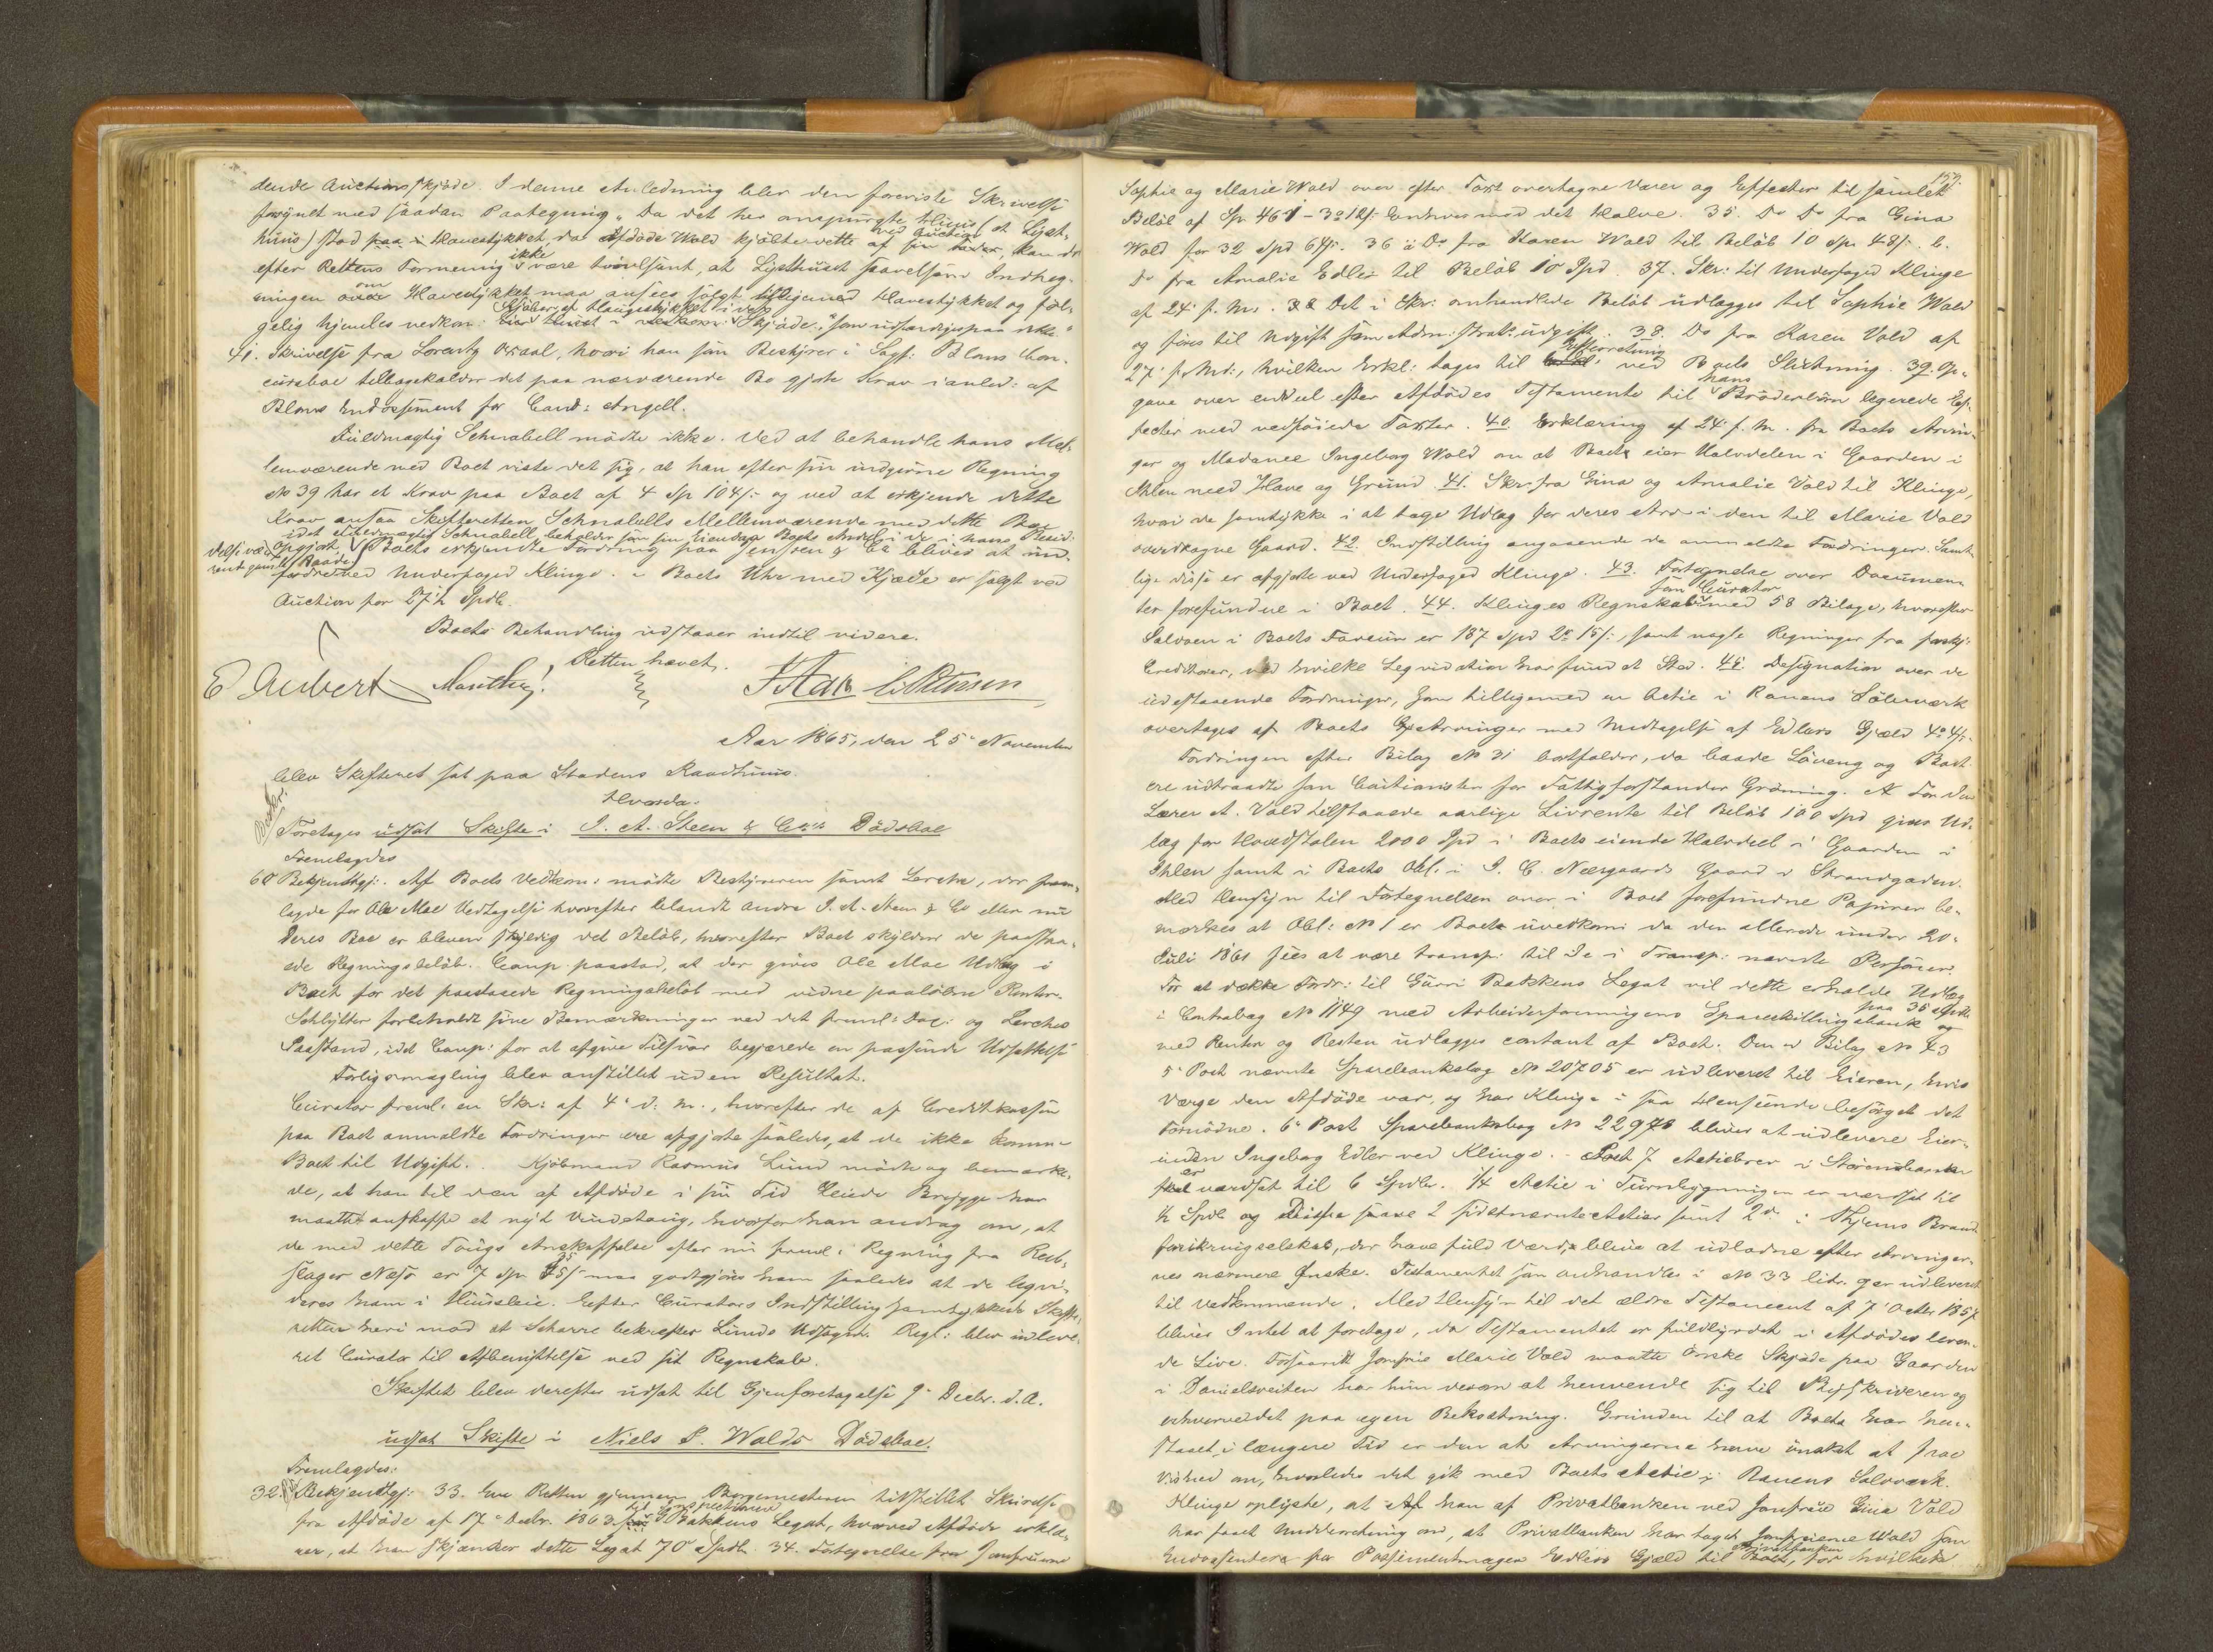 dende Auctionsskjöde. I denne Anledning blev den foreviste Skrivelse
forsynet med saadan Paategning „Da det her omspurgte Huus (et Lyst-
huus) stod paa i Havestykket, da Afdöde Wold kjöbte dette ved Auction af sin, kan det
efter Rettens Formening ikke være tvivlsomt, at Lysthuset saavelsom Indheg-
ningen om Havestykket maa ansees solgt tilligemed Havestykket og föl-
gelig hjemles vedkom: Kjöber af Haugestykket i dets Skjöde, som udfærdiges paa dette"
41. Skrivelse fra Lorentz Orsaal, hvori han som Bestyrer i Sagf: Bloms Con-
cursboe tilbagekalder det paa nærværende Bo gjorte Krav i anled: af
Bloms Endossement for Cand: Angell.
Fuldmægtig Schnabell mödte ikke. Ved at behandle hans Mel-
lemværende med Boet viste det sig, at han efter sin indgivne Regning
No 39 har et Krav paa Boet af 4 Sp 104 s: og ved at erkjende dette
Krav ansaa Skifteretten Schnabells Mellemværende med dette Boe
opgjort, idet Fuldmægtig Schnabell beholder som sin Eiendom Boets Andel i de i hans
Boets erkjendte Fordring paa Jenssen & Co bliver at ind-
fordre ved Underfoged Klinge. - Boets Uhr med Kjæde er solgt ved
Auction for 27½ Spdlr.
Boets Behandling udstaaer indtil videre.
Retten hævet.
E Aubert Monthey. C Petersen
Aar 1865, den 25de November
blev Skifteret sat paa Stadens Raadhuus.
Hvorda:
Foretages udsat Skifte i J. A. Steen & Co's Dödsboe
Fremlagdes
60 Bekjendtgj:. Af Boets Vedkom: mödte Bestyreren samt Lerche, der frem-
lagde for Ole Moe Vedtagelse hvorefter blandt andre J. A. Steen & Co eller nu
deres Boe er bleven skyldig det Beløb, hvorefter Boet skylder de paastaa-
ede Regningsbelöb. Comp. paastod, at der gives Ole Moe Udlæg i
Boet for det paastaaede Regningsbelöb med videre paalöbne Renter.
Schlytter forbeholdt sine Bemærkninger ved det freml: Doc: og Lerches
Paastand, idet Comp: for at afgive Tilsvar begjærede en passende Udsættelse
Forligsmægling blev anstillet uden Resultat.
Curator freml: en Skr: af 4de d: M., hvorefter de af Creditkassen
paa Boet anmeldte Fordringer ere afgjorte saaledes, at de ikke komme
Boet til Udgift. Kjöbmand Rasmus Lund mödte og bemærke-
de, at han til den af Afdöde i sin Tid Brygge har
maattet anskaffe et nyt Vindetoug, hvorfor han androg om, at
de med dette Tougs Anskaffelse efter nu freml: Regning fra Reb-
slager Næss er 7 Sp 35 s maa godtgjöres ham saaledes at de liqvi-
deres ham i Huusleie. Efter Curators Indstilling samtykkede Skifte-
retten heri mod at Scharre bekræfter Lunds Udsagn. Regn: blev indleve-
ret Curator til Afbenyttelse ved sit Regnskab.
Skiftet blev derefter udsat til Gjenforetagelse 9de Decbr. d. A.
udsat Skifte i Niels P. Wolds Dödsboe.
Fremlagdes:
32. Bekjendtgj: 33. En Retten gjennem Borgemesteren tilstillet Skrivelse
fra Afdöde af 17de Decbr. 1863 til Inspectionen G. Bakkens Legat, hvorved Afdöde erklæ-
rer, at han skjænker dette Legat 70 Spdlr. 34. Fortegnelse fra Jomfruerne
159.
Sophie og Marie Wold over efter Taxt overtagne Varer og Effecter til samlet
Belöb af Sp. 461 - 3 12 s: Enhver med det Halve. 35. Do Do fra Gina
Wold for 32 Spd 64 s. 36 a Do fra Karen Wold til Belöb 10 Sp. 48 s. b.
Do fra Amalie Edler til Belöb 10 Spd. 37. Skr: til Underfoged Klinge
af 24de f. M. Det i Skr: omhandlede Belöb udlægges til Sophie Wold
og föres til Udgift som Adm:strat: udgift. 38. Do fra Karen Vold af
27de f. Md:, hvilken Erkl: tages til Efterretning ved Boets Slutning. 39. Op-
gave over endeel efter Afdödes Testamente til hans Bröderbörn legerede Ef-
fecter med vedföiede Taxter. 40. Erklæring af 24de f. M. fra Boets Arvin-
ger og Madame Ingeborg Wold om at Boet eier Halvdelen i Gaarden i
Ihlen med Have og Grund. 41. Skr: fra Gina og Amalie Vold til Klinge,
hvori de samtykke i at tage Udlæg for deres Arv i den til Marie Vold
overdragne Gaard. 42. Indstilling angaaende de anmeldte Fordringer. Samt-
lige disse er afgjorte ved Underfoged Klinge. 43. Fortegnelse over Documen-
ter forefundne i Boet. 44. Klinges Regnskab som Curator med 58 Bilage, hvorefter
Saldoen i Boets Faveur er 187 Spd 2 15 s, samt nogle Regninger fra forskj:
Creditorer, ved hvilke Liqvidation har fundet Sted. 45. Designation over de
udestaaende Fordringer, som tilligemed en Actie i Ranens Sölvværk
overtages af Boets Arvinger med Undtagelse af Edlers Gjæld
Fordringen efter Bilag No 31 bortfalder, da baade Löveng og Boet
ere udtraadte som Cautionister for Fattigforstander Gröning. For den
Lærer A. Vold tilstaaede aarlige Livrente til Belöb 100 Spd gives Ud-
læg for Hovedstolen 2000 Spd i Boets eiende Halvdeel i Gaarden i
Ihlen samt i Boets Obl. i J. C. Neergaards Gaard i Strandgaden.
Med Hensyn til Fortegnelsen over i Boet forefundne Papirer be-
mærkes at Obl: No 1 er Boet uvedkom: da den allerede under 20de
Juli 1861 sees at være transp: til de i Transp: nævnte Personer.
For at dække Fordr: til Gurri Bakkens Legat vil dette erholde Udlæg
i Contrabog No 1149 med Arbeiderforeningens Spareskillingsbank paa 35 Spdlr og
med Renter og Resten udlægges contant af Boet. Den i Bilag No 43
5te Post nævnte Sparebanksbog No 20705 er udleveret til Eieren, hvis
Værge den Afdöde var, og har Klinge i saa Henseende besörget det
Fornödne. 6te Post Sparebanksbog No 22976 bliver at udlevere Eier-
inden Ingeborg Edler ved Klinge. - Post 7 Actiebrev i Störensbanen
er værdsat til 6 Spdlr. 1/4 Actie i Turnbygningen er værdsat til
½ Spdl og Disse samt 2 sidstnævnte Actier samt 2 do i Thjems Brand
forsikringsselskab, der have fuld Værdi, blive at udlodne efter Arvinger-
nes nærmere Ønske. Testamentet som omhandles i No 33 litr. g er udleveret
til Vedkommende. Med Hensyn til det ældre Testament af 7de Octbr 1857
bliver Intet at foretage, da Testamentet er fuldbyrdet i Afdödes leven-
de Live. Forsaavidt Jomfrue Marie Vold maatte önske Skjöde paa Gaarden
i Danielsveiten har hun derom at henvende sig til Byskriveren og
erhverve det paa egen Bekostning. Grunden til at Boet har hen-
staaet i længere Tid er den at Arvingerne have önsket at faae
Vished om, hvorledes det gik med Boets Actie i Ranens Sölvværk.
Klinge oplyste, at han af Privatbanken ved Jomfrue Gina Vold
har faaet Underretning om, at Privatbanken har taget Jomfruerne Wold som
Endossenter for Possementmager Edlers Gjæld til Privatbanken, for hvilken